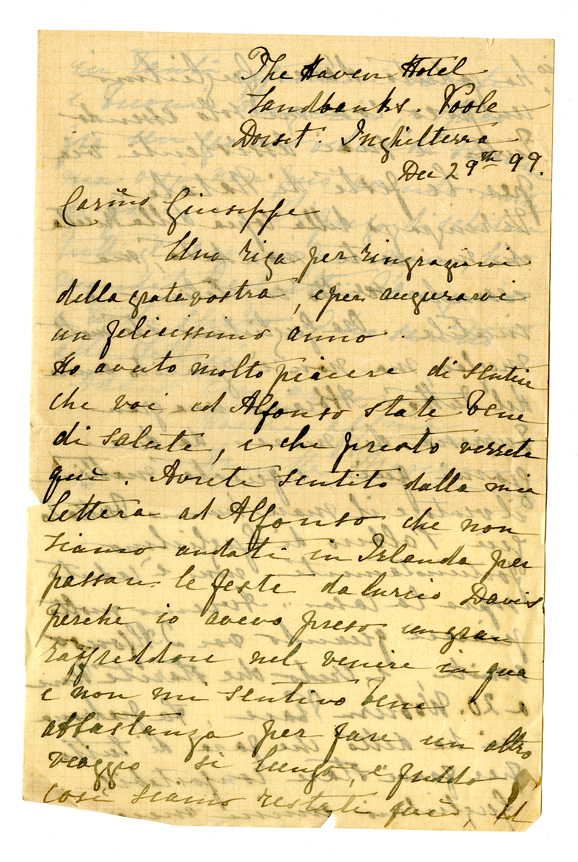 The Haven Hotel
Sandbanks Poole
Dorset. Inghilterra
Dec 29th 99.
Carimo Giuseppe
Una riga per ringraziarvi
della grata vostra, e per augurarvi
un felicissimo anno.
Ho avuto molto piacere di sentire
che voi ed Alfonso state bene
di salute, e che presto verrete
qui. Avrete sentito dalla mia
lettera ad Alfonso che non
siamo andati in Irlanda per
passare le feste da Enrico Davis
perchè io avevo preso un gran
raffreddore nel venire in qua
e non mi sentivo bene
abbastanza per fare un altro
viaggio si lungo, e freddo
così siamo restati qui,